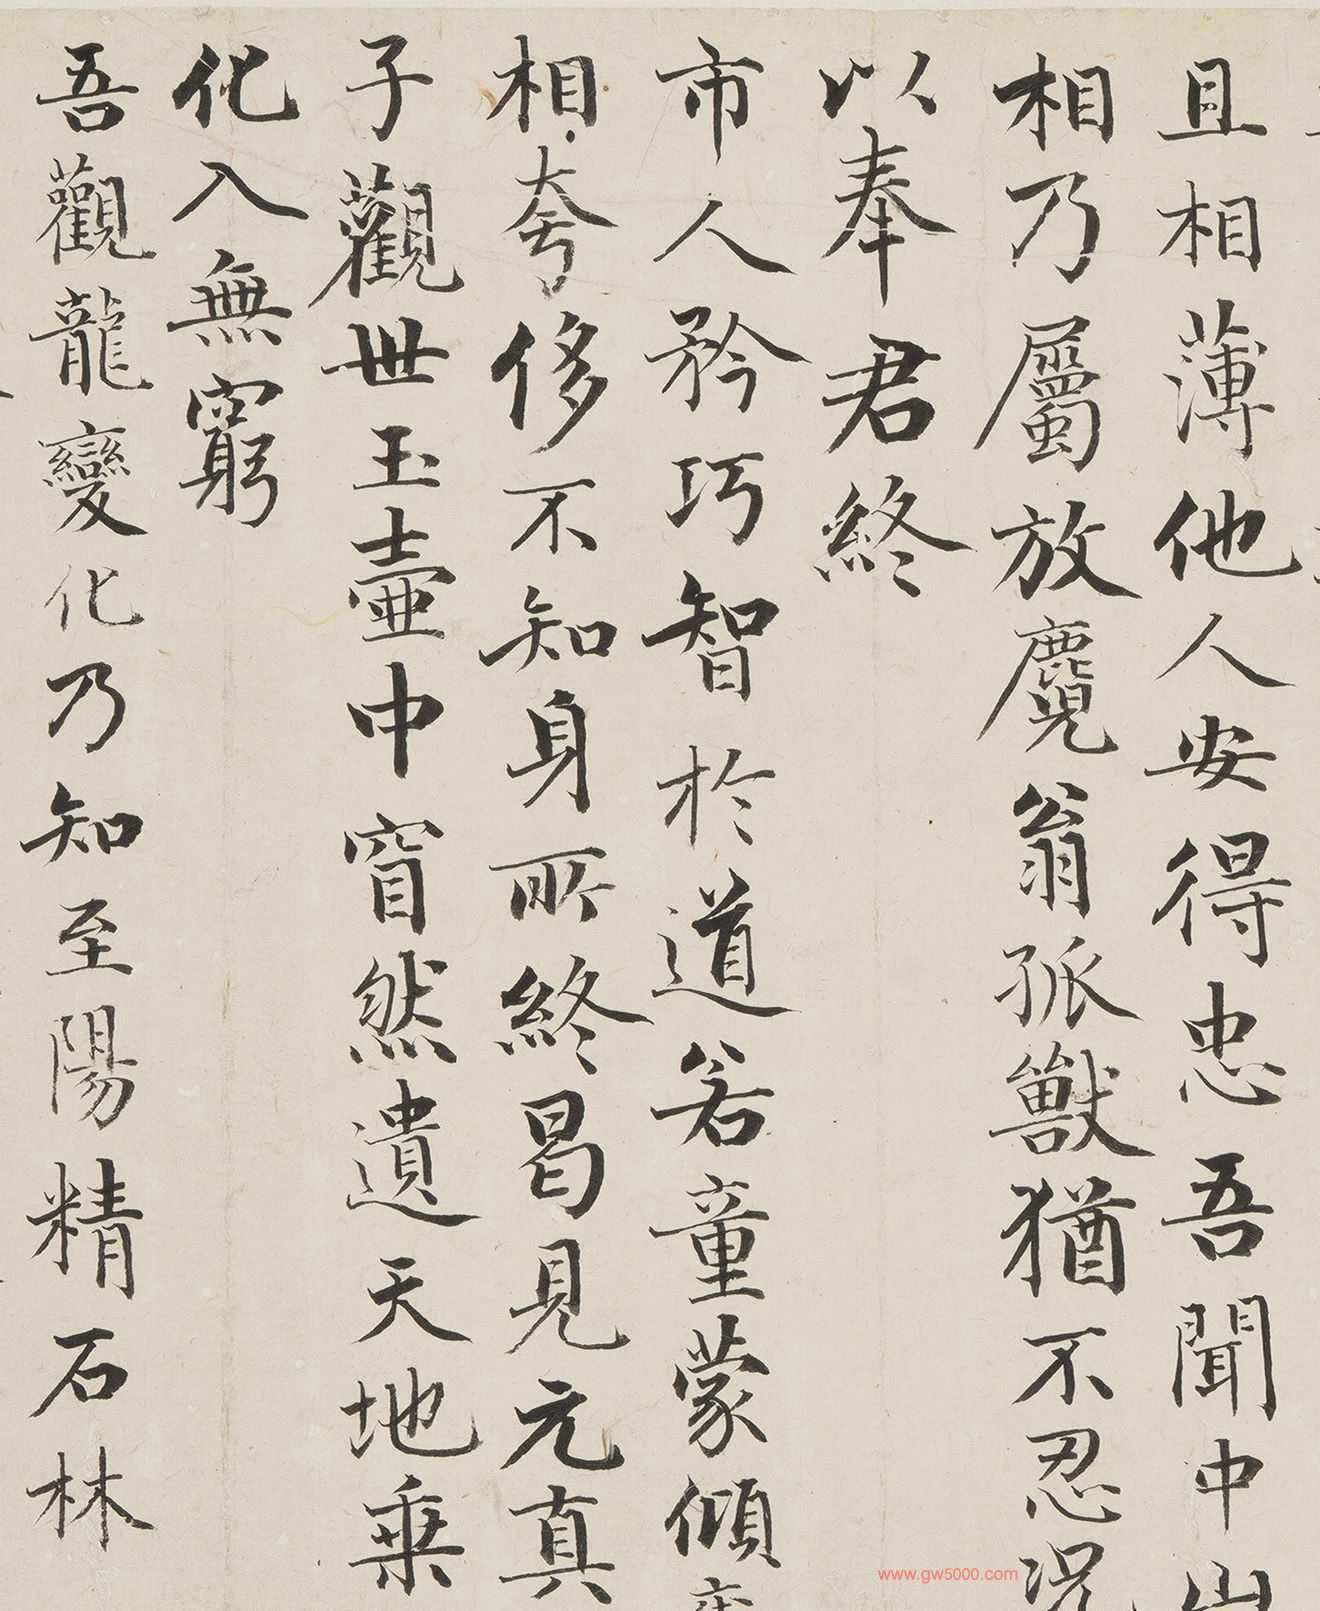 且相薄他人安得忠吾聞中山
相乃屬放麑翁孤獸猶不忍況
以奉君終
市人矜巧智於道若童蒙傾
相夸侈不知身所終曷見元真
子觀世玉壺中窅然遺天地乗
化入無窮
吾觀龍變化乃知至陽精石林
www.gw5000.com